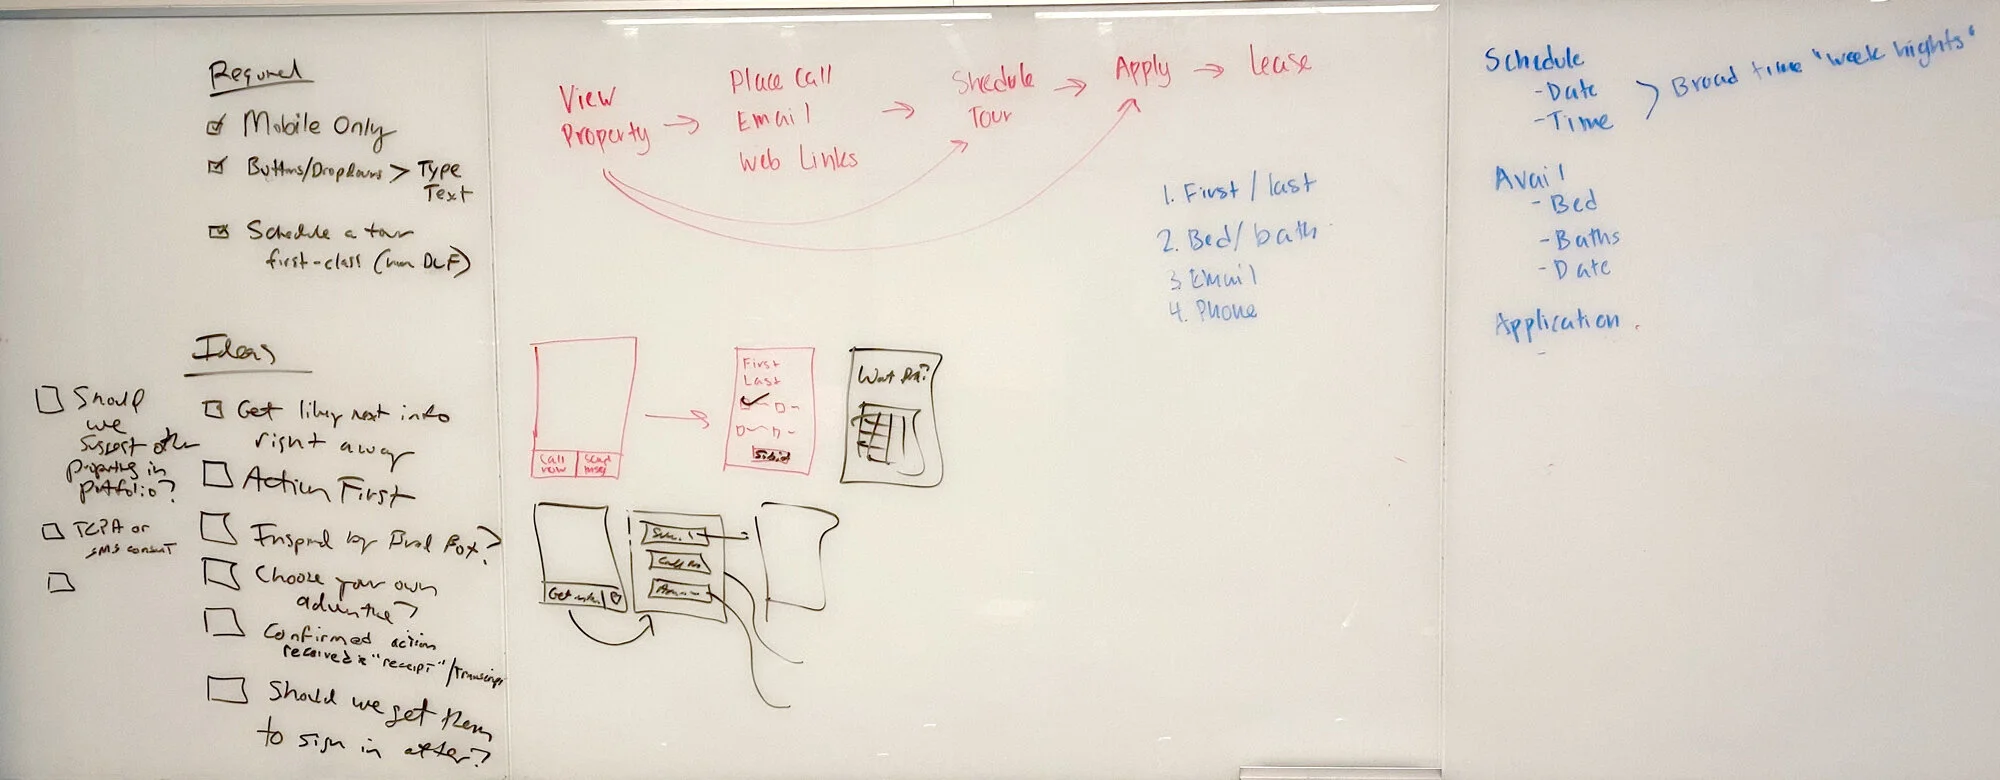 Required
Mobile Only
Buttons/Dropdowns > Type
Text
Schedule a tour
first-class (non DLF)
Ideas
Get likely next info
right away
Action First
Inspired by Bud Bot?
Choose your own
adventure?
Confirmed action
received is "receipt"/Transcript
Should we get them
to sign in after?
Should
we
suggest other
properties in
portfolio?
TCPA or
SMS consent
View
Property
Place Call
Email
Web Links
Shedule
Tour
Apply
Lease
1. First / last
2. Bed/bath
3 Email
4. Phone
Call
now
Send
msg
First
Last
Get
Call
Schedule
- Date
- Time
Broad time "week nights"
Avail
- Bed
- Baths
- Date
Application
-